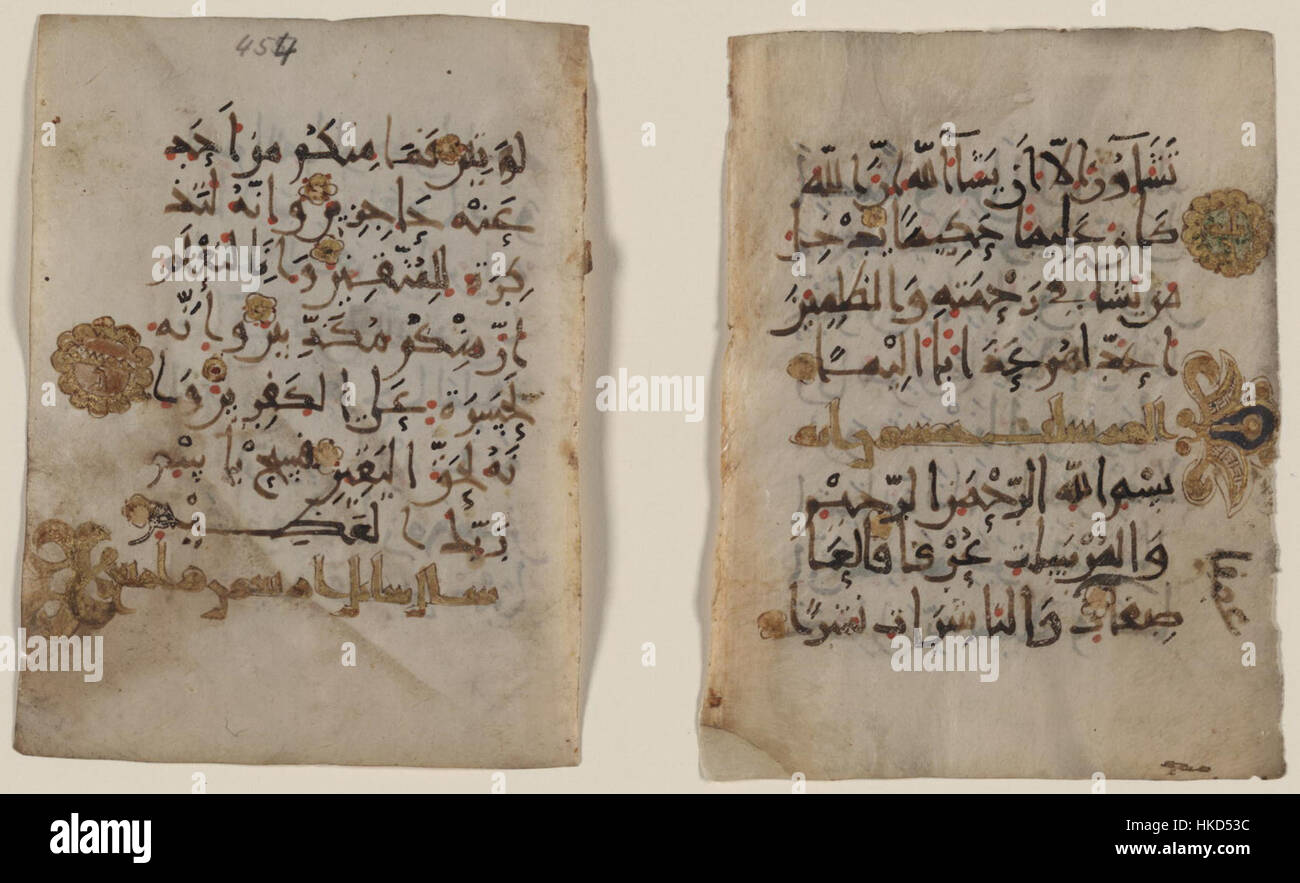 454
لوتين فما منكم من احد
عنه حاجزين وانه لتذ
كرة للمتقين وانا لنعلم
ان منكم مكذبين وانه
لحسرة على الكفرين وا
نه لحق اليقين فسبح باسم
ربك العظيم
سال سايل
تشاون الا ان يشا الله ان الله
كان عليما حكيما يدخل
من يشا في رحمته والظلمين
اعد لهم عذابا اليما
المرسلت خمسون ايه
بسم الله الرحمن الرحيم
والمرسلات عرفا فالعا
صفات والناشرات نشرا
عصفا
alamy
a
alamy
Image ID: HKD53C
www.alamy.com